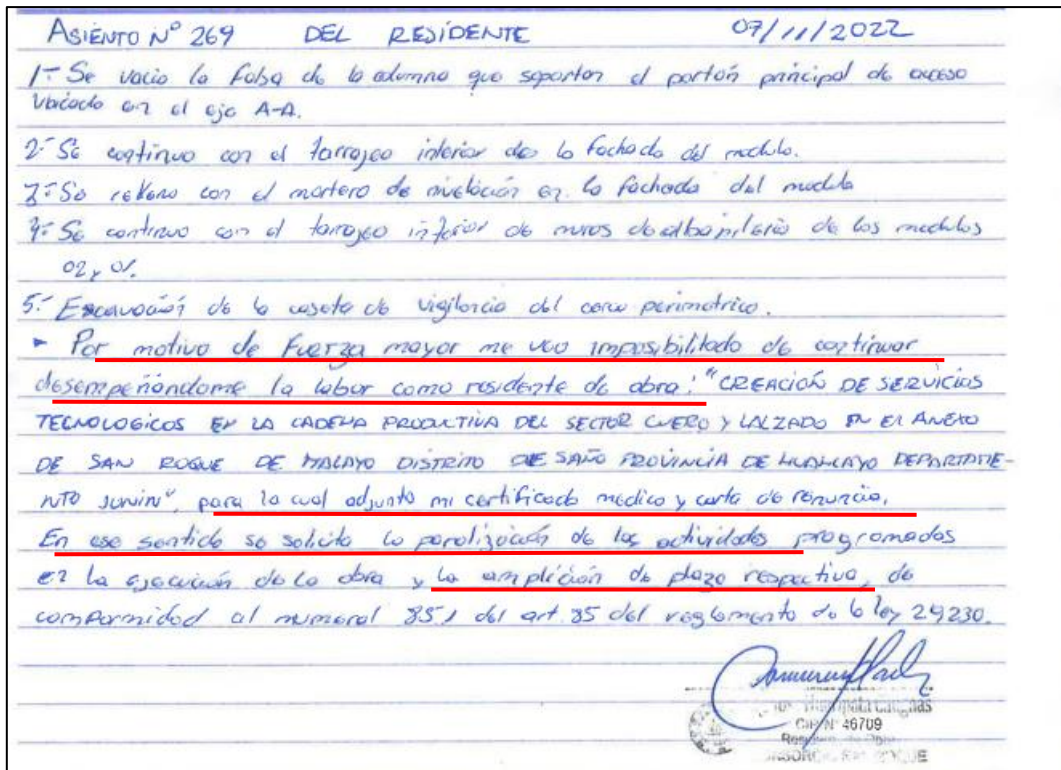 ASIENTO N° 269 DEL RESIDENTE 07/11/2022
1.- Se vacio la falsa de la columna que soportan el portón principal de acceso
Ubicado en el eje A-A.
2.- Se continuo con el tarrajeo interior de la fachada del modulo.
3.- Se relleno con el mortero de nivelación en la fachada del modulo
4.- Se continuo con el tarrajeo inferior de muros de albañileria de los modulos
02 y 01.
5.- Excavación de la caseta de vigilancia del cerco perimetrico.
- Por motivo de Fuerza mayor me veo imposibilitado de continuar
desempeñandome la labor como residente de obra: "CREACIÓN DE SERVICIOS
TECNOLOGICOS EN LA CADENA PRODUCTIVA DEL SECTOR CUERO Y CALZADO EN EL ANEXO
DE SAN ROQUE DE MALAYO DISTRITO DE SAÑO PROVINCIA DE HUANCAYO DEPARTAME-
NTO JUNIN", para la cual adjunto mi certificado medico y carta de renuncia.
En ese sentido se solicita la paralización de las actividades programadas
en la ejecución de la obra y la ampliación de plazo respectiva, de
comformidad al numeral 85.1 del art. 85 del reglamento de la ley 29230.
CIP N° 46709